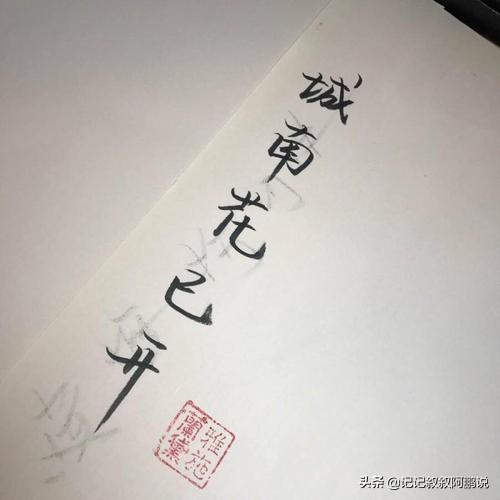 城南花已开
雅施
蘭黛
头条 @记记叙叙阿鹏说